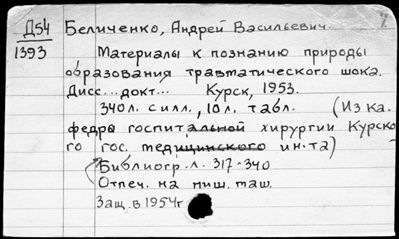 Д54 Беличенко, Андрей Васильевич
1393 Материалы к познанию природы
образования травматического шока.
Дисс... докт... Курск, 1953.
340л. с илл., 10л. табл. (Из ка-
федры госпитальной хирургии Курско-
го гос. медицинского ин-та)
Библиогр. л. 317-340
Отпеч. на пиш. маш.
Защ. в 1954г